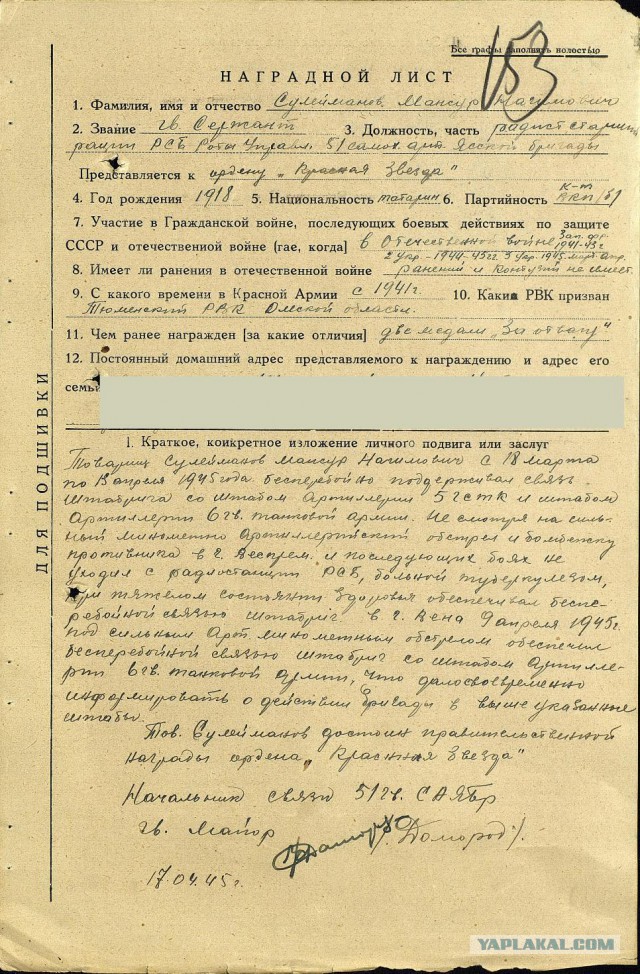 Все графы заполнять полостью
153
НАГРАДНОЙ ЛИСТ
1. Фамилия, имя и отчество Сулейманов Мансур Нагимович
2. Звание гв. Сержант 3. Должность, часть радист старший
рации РСБ Роты Управл. 51 самох. арт. Ясской бригады
Представляется к ордену „Красная Звезда"
4. Год рождения 1918 5. Национальность татарин 6. Партийность к-т ВКП/б/
7. Участие в Гражданской войне, последующих боевых действиях по защите
СССР и отечественной войне (гае, когда) в Отечественной войне Зап. фр. 1941-43г
2 Укр. - 1944-45гг. 3 Укр. 1945 март-апр.
8. Имеет ли ранения в отечественной войне ранений и контузий не имеет.
9. С какого времени в Красной Армии с 1941г. 10. Каким РВК призван
Тюменский РВК Омской области.
11. Чем ранее награжден [за какие отличия] две медали „За отвагу"
12. Постоянный домашний адрес представляемого к награждению и адрес его
семьи
ДЛЯ ПОДШИВКИ
I. Краткое, конкретное изложение личного подвига или заслуг
Товарищ Сулейманов Мансур Нагимович с 18 марта
по 13 апреля 1945 года бесперебойно поддерживал связь
штабрига со штабом Артиллерии 5 гстк и штабом
Артиллерии 6 гв. танковой армии. Не смотря на силь-
ный минометно Артиллерийский обстрел и бомбежку
противника в г. Веспрем и последующих боях не
уходил с радиостанции РСБ, больной туберкулезом,
при тяжелом состоянии здоровья обеспечивал беспе-
ребойной связью штабриг. в г. Вена 9 апреля 1945г.
под сильным Арт. минометным обстрелом обеспечил
бесперебойной связью штабриг со штабом Артилле-
рии 6 гв. танковой армии, что дало своевременно
информировать о действии бригады в выше указанные
штабы.
Тов. Сулейманов достоин правительственной
награды ордена „Красная Звезда"
Начальник связи 51 гв. САЯбр
гв. Майор /Домород/.
17.04.45г.
YAPLAKAL.COM